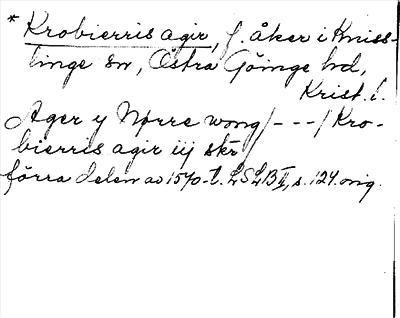 * Krobierris agir, f. åker i Kniss-
linge sn, Östra Göinge hd,
Krist. l.
Ager y Nørre wong/---/Kro-
bierris agir iij skr
förra delen av 1570-t. LSLB II, s. 124. orig.